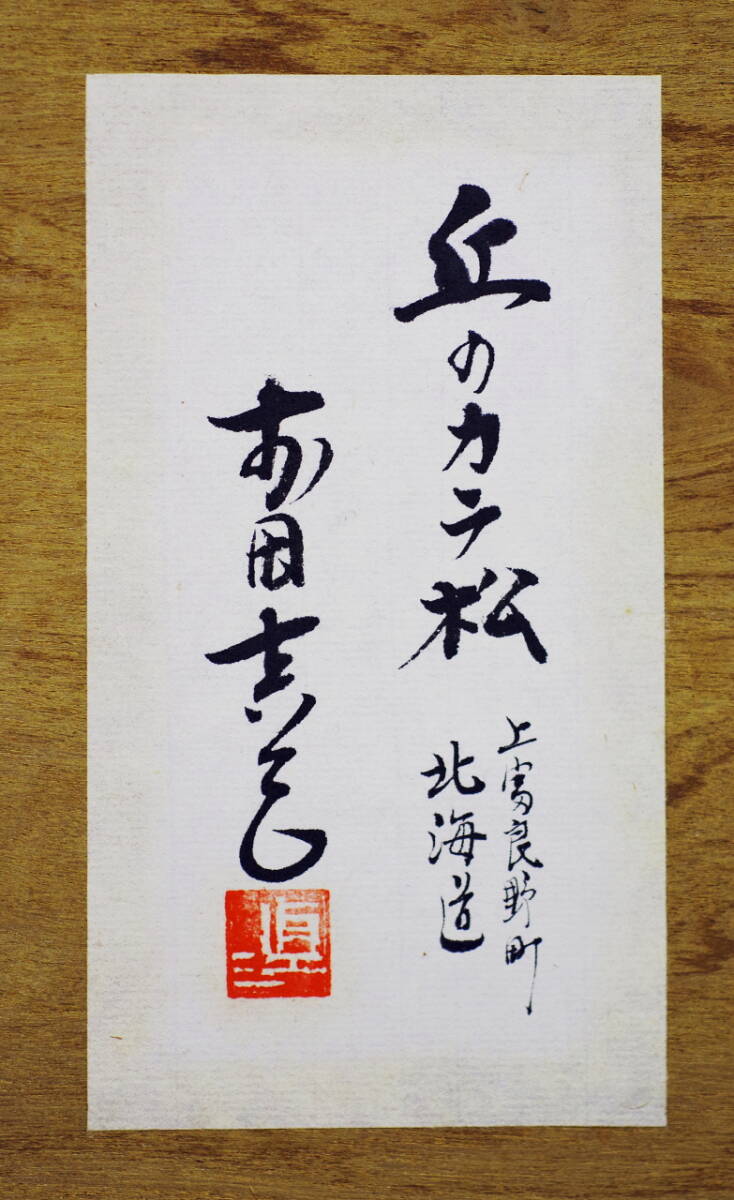 丘のカラ松
上富良野町
北海道
前田真三
真三